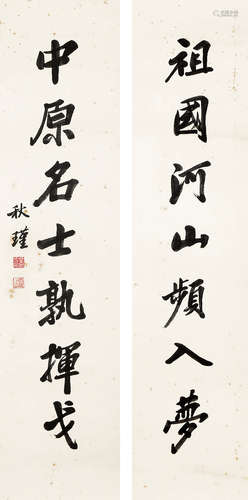 祖國河山頻入夢
中原名士孰揮戈
秋瑾